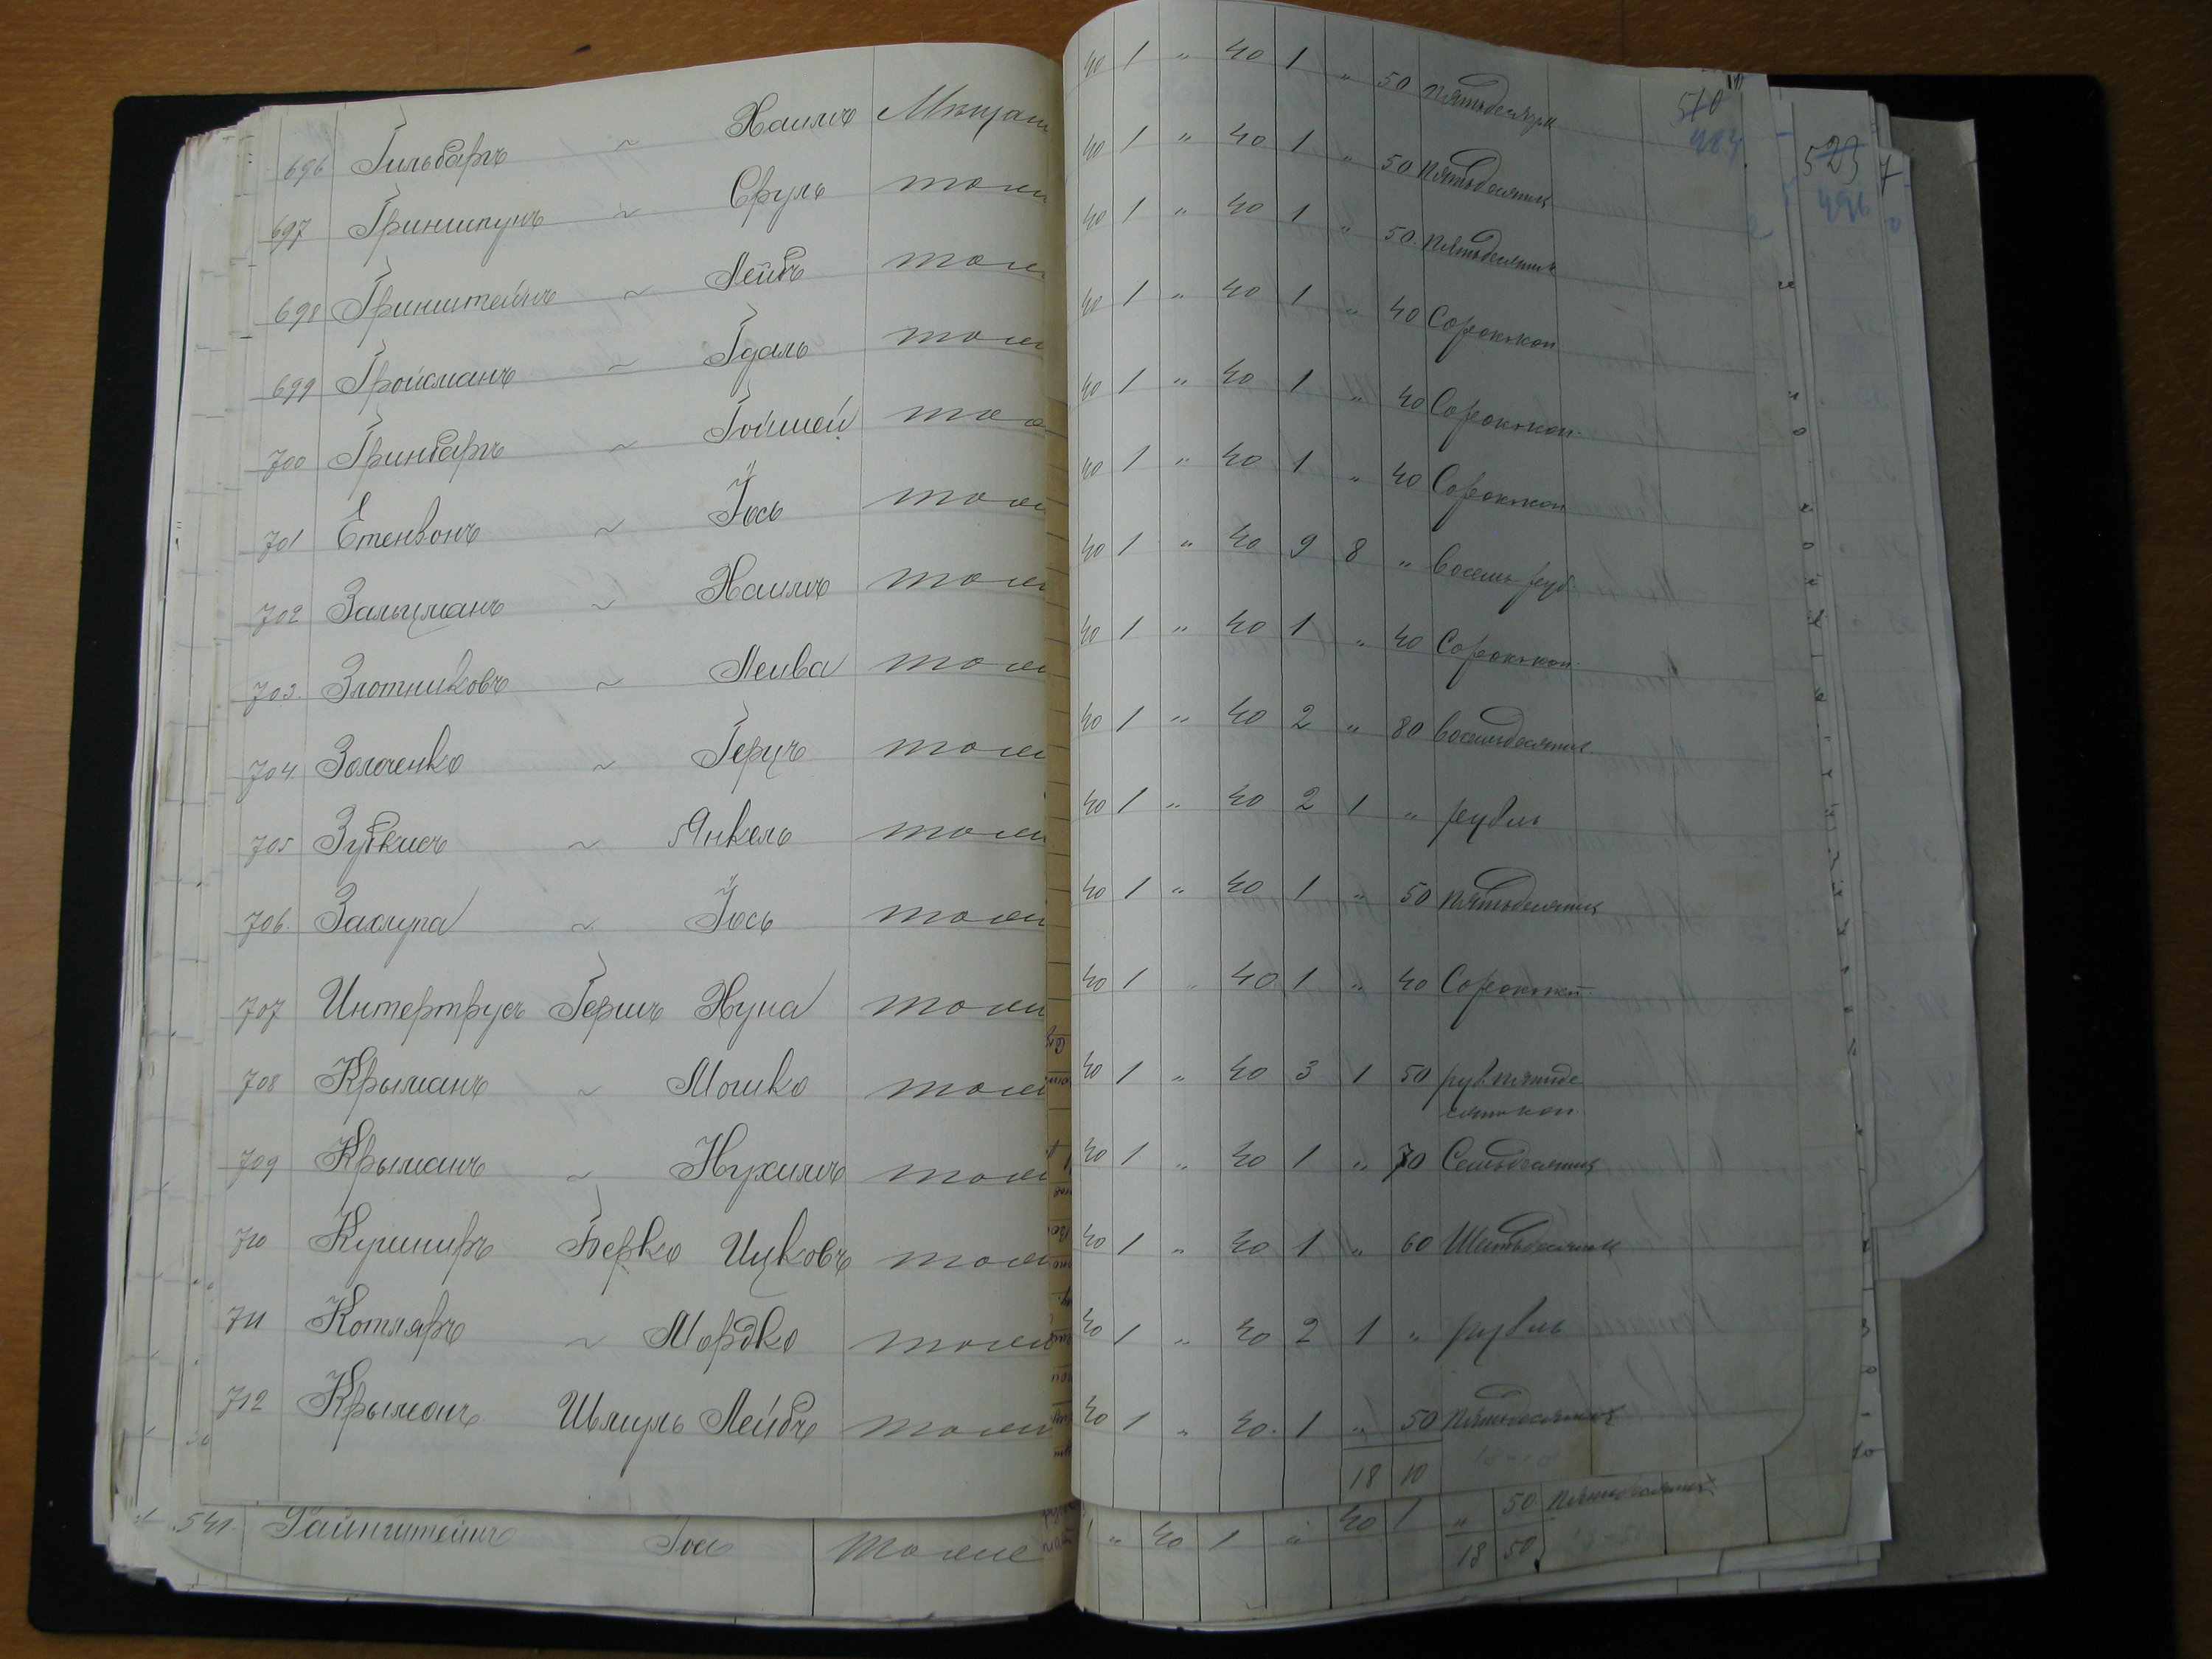 696 Гильбаръ ~ Хаимъ Мѣщан
697 Гриншпунъ ~ Сруль тоже
698 Гринштейнъ ~ Лейбъ тоже
699 Гройсманъ ~ Гдаль тоже
700 Гринбаръ ~ тоже
701 Етенвонъ ~ Іось тоже
702 Зальцманъ ~ Хаимъ тоже
703. Злотниковъ ~ Лейва тоже
704 Золоченко ~ Герцъ тоже
705 Зубкисъ ~ Янкель тоже
706. Заслупа ~ Іось тоже
707 Интертрусъ Гершъ Хуна тоже
708 Крыманъ ~ Мошко тоже
709 Крыманъ ~ Нухимъ тоже
710 Кушниръ Берко Ицковъ тоже
711 Котляръ ~ Мордко тоже
712 Крыманъ Шмуль Лейбъ тоже
541. Гайнштейнъ Іос тоже
510
484
523
496
7
40 1 " 40 1 " 50 пятьдесятк
40 1 " 40 1 " 50 пятьдесятк
40 1 " 40 1 " 50 пятьдесятк
40 1 " 40 1 " 40 Сорок коп
40 1 " 40 1 " 40 Сорок коп.
40 1 " 40 1 " 40 Сорок коп
40 1 " 40 9 8 " восемь руб
40 1 " 40 1 " 40 Сорок коп.
40 1 " 40 2 " 80 восемьдесятк
40 1 " 40 2 1 " рубль
40 1 " 40 1 " 50 пятьдесятк
40 1 " 40 1 " 40 Сорок коп.
40 1 " 40 3 1 50 руб пятиде
сять коп.
40 1 " 40 1 " 70 Семьдесятк
40 1 " 40 1 " 60 Шестьдесятк
40 1 " 40 2 1 " рубль
40 1 " 40. 1 " 50 пятьдесятк
18 10
1 " 40 1 " 40 1 " 50 пятьдесятк
18 50